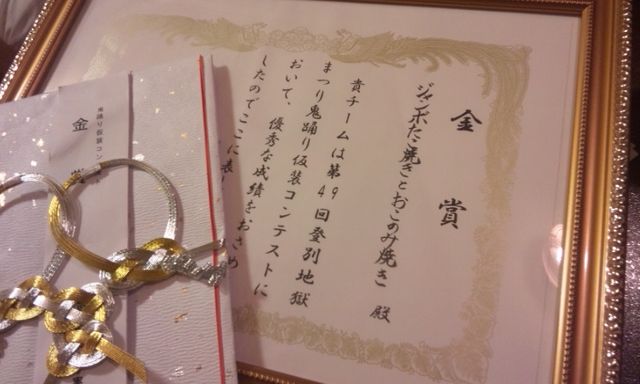 金賞
ジャンボたこ焼きとおこのみ焼き 殿
貴チームは第49回登別地獄
まつり鬼踊り仮装コンテストに
おいて、優秀な成績をおさめ
したのでここに表
鬼踊り仮装コン
金